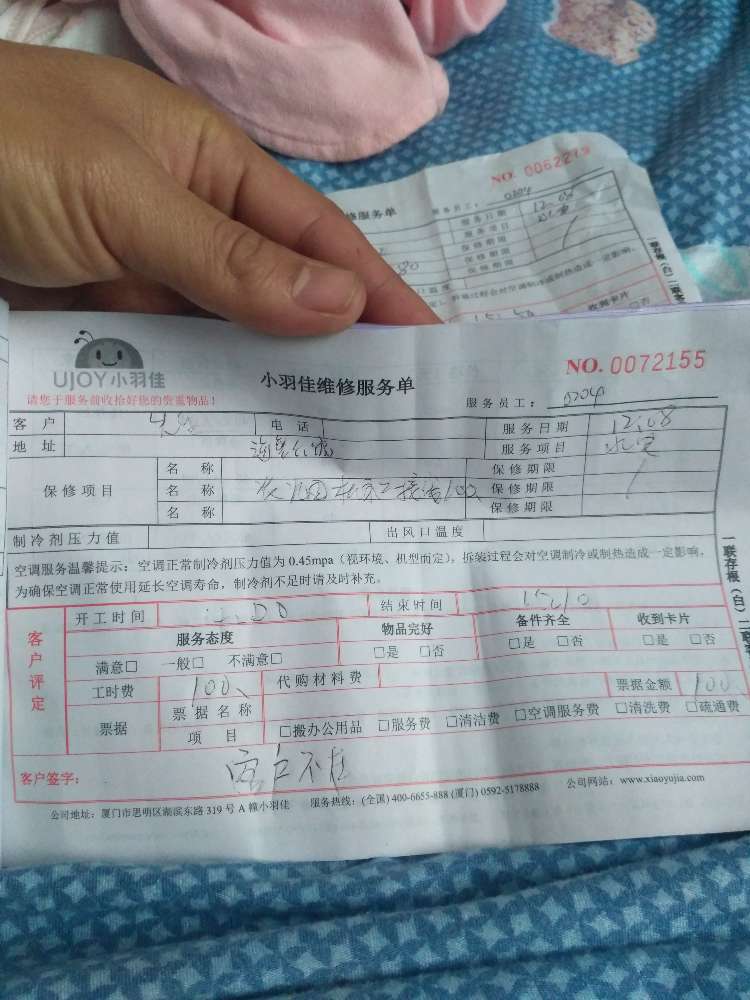 NO. 0062275
修服务单
服务员工： 0204
服务日期 12.08
服务项目
保修期限
保修期限
保修期限
80
拆装过程会对空调制冷或制热造成一定影响。
收到卡片
□否
UJOY小羽佳
请您于服务前收拾好您的贵重物品！
小羽佳维修服务单
NO. 0072155
服务员工： 0204
客 户 电 话 服务日期 12.08
地 址 服务项目 水宝
保修项目
名 称 保修期限
名 称 保修期限
名 称 保修期限
制冷剂压力值 出风口温度
空调服务温馨提示：空调正常制冷剂压力值为 0.45mpa（视环境、机型而定），拆装过程会对空调制冷或制热造成一定影响。
为确保空调正常使用延长空调寿命，制冷剂不足时请及时补充。
一联存根（白）二联
客户评定
开工时间 结束时间 15:10
服务态度 物品完好 备件齐全 收到卡片
满意□ 一般□ 不满意□ □是 □否 □是 □否 □是 □否
工时费 100、 代购材料费 票据金额 100、
票据 票据名称
项 目 □搬办公用品 □服务费 □清洁费 □空调服务费 □清洗费 □疏通费
客户签字： 客户不在
公司地址：厦门市思明区湖滨东路 319 号 A 幢小羽佳 服务热线：(全国) 400-6655-888 (厦门) 0592-5178888 公司网站：www.xiaoyujia.com